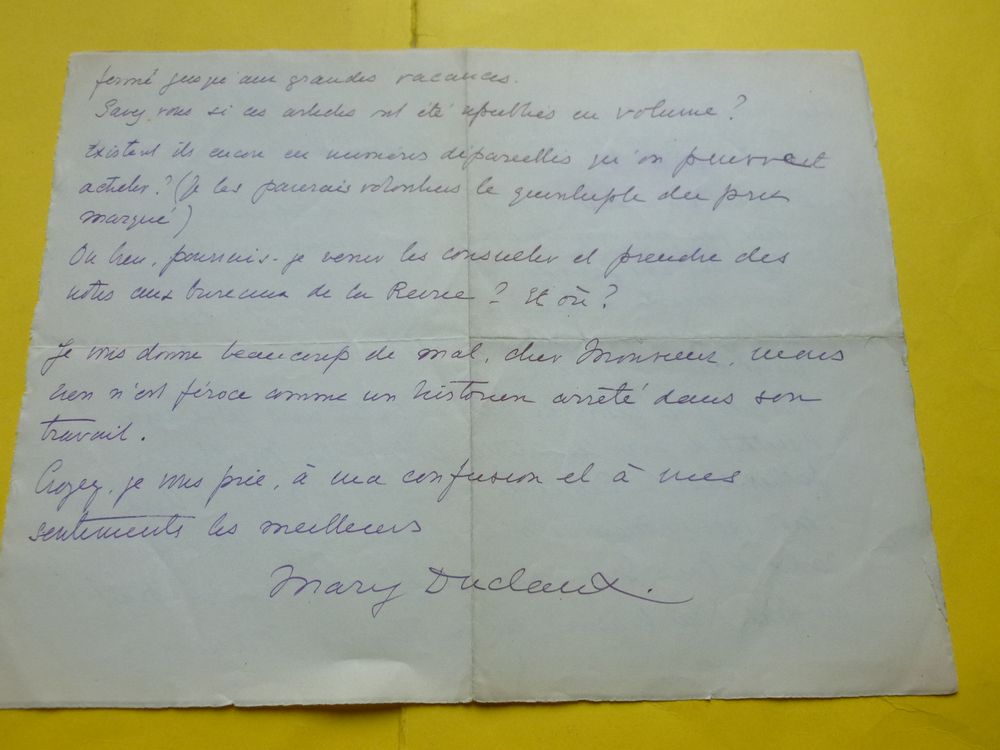 fermé jusqu'aux grandes vacances.
Savez vous si ces articles ont été republiés en volume?
Existent ils encore en numéros dépareillés qu'on pourrait
acheter? (Je les paierais volontiers le quintuple du prix
marqué)
Ou bien, pourrais-je venir les consulter et prendre des
notes aux bureaux de la Revue? Et où?
Je vous donne beaucoup de mal, cher Monsieur, mais
rien n'est féroce comme un historien arrêté dans son
travail.
Croyez, je vous prie, à ma confusion et à mes
sentiments les meilleurs
Mary Duclaux.